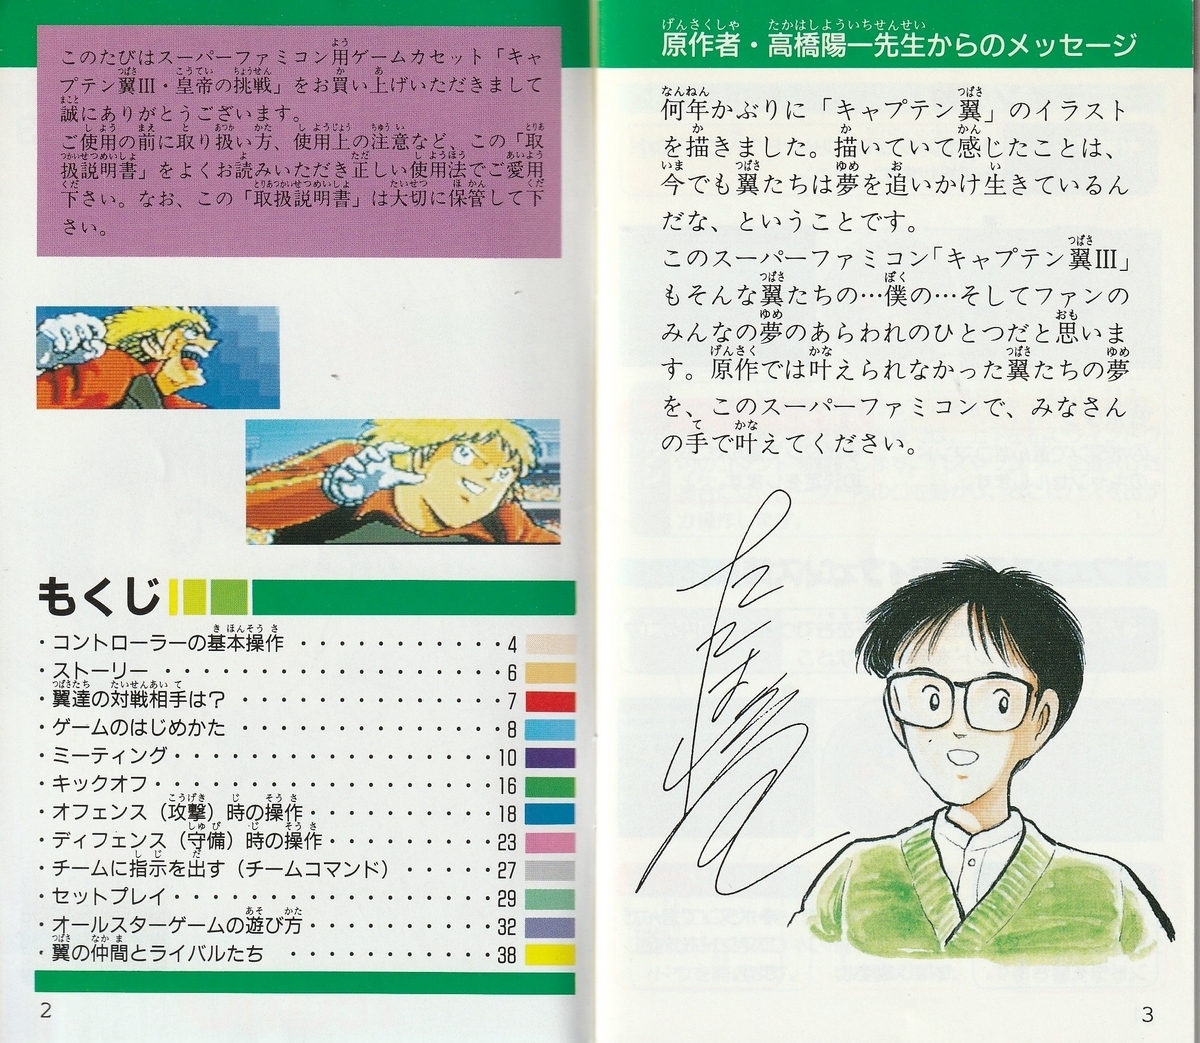 このたびはスーパーファミコン用ゲームカセット「キャ
プテン翼III・皇帝の挑戦」をお買い上げいただきまして
誠にありがとうございます。
ご使用の前に取り扱い方、使用上の注意など、この「取
扱説明書」をよくお読みいただき正しい使用法でご愛用
下さい。なお、この「取扱説明書」は大切に保管して下
さい。
もくじ
・コントローラーの基本操作 ・・・・・・・・・・・4
・ストーリー ・・・・・・・・・・・・・・・・・・6
・翼達の対戦相手は？ ・・・・・・・・・・・・・・7
・ゲームのはじめかた ・・・・・・・・・・・・・・8
・ミーティング・・・・・・・・・・・・・・・・・10
・キックオフ・・・・・・・・・・・・・・・・・・16
・オフェンス（攻撃）時の操作・・・・・・・・・・18
・ディフェンス（守備）時の操作・・・・・・・・・23
・チームに指示を出す（チームコマンド） ・・・・・27
・セットプレイ・・・・・・・・・・・・・・・・・29
・オールスターゲームの遊び方・・・・・・・・・・32
・翼の仲間とライバルたち ・・・・・・・・・・・38
2
原作者・高橋陽一先生からのメッセージ
何年かぶりに「キャプテン翼」のイラスト
を描きました。描いていて感じたことは、
今でも翼たちは夢を追いかけ生きているん
だな、ということです。
このスーパーファミコン「キャプテン翼III」
もそんな翼たちの…僕の…そしてファンの
みんなの夢のあらわれのひとつだと思いま
す。原作では叶えられなかった翼たちの夢
を、このスーパーファミコンで、みなさん
の手で叶えてください。
3